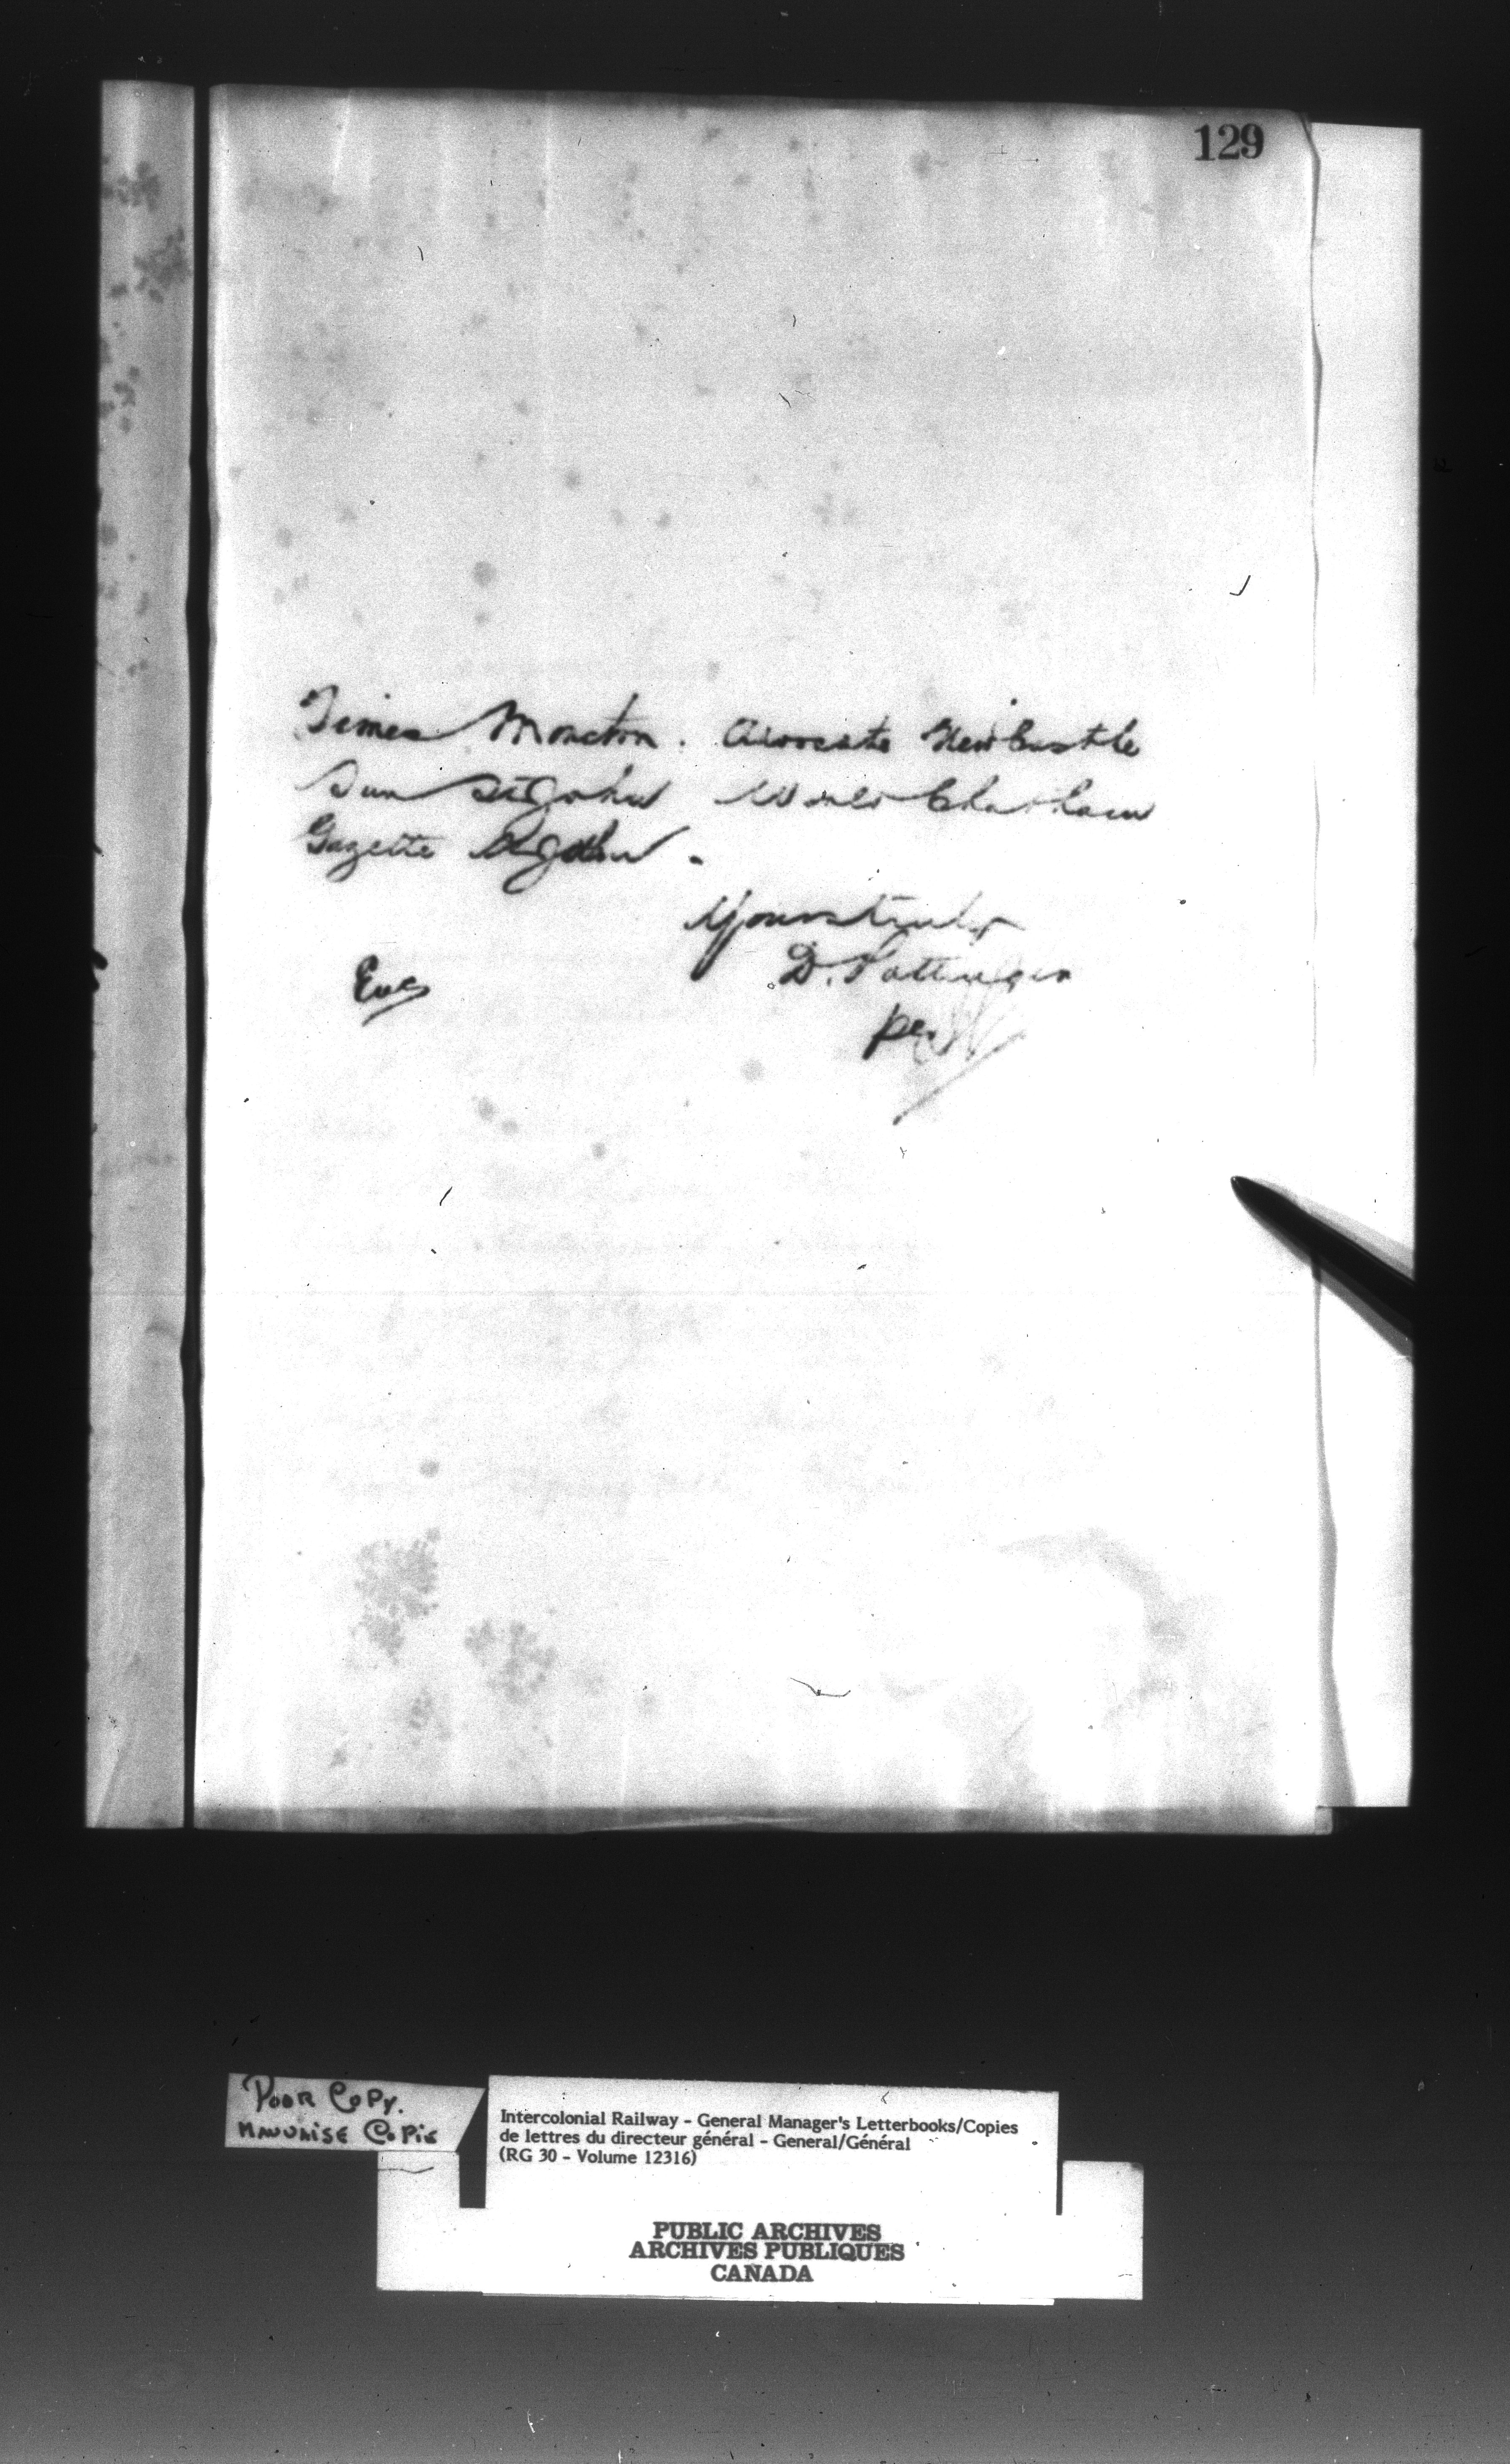 129
Times Moncton. Advocate Newcastle
Sun St John World Chatham
Gazette St John.
Yours truly
D. Pottinger
Enc
per
POOR COPY.
MAUVAISE COPIE
Intercolonial Railway - General Manager's Letterbooks/Copies
de lettres du directeur général - General/Général
(RG 30 - Volume 12316)
PUBLIC ARCHIVES
ARCHIVES PUBLIQUES
CANADA